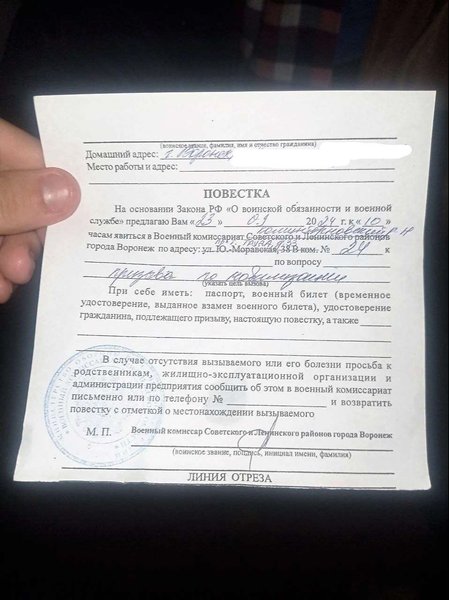 (воинское звание, фамилия, имя и отчество гражданина)
Домашний адрес: г. Воронеж,
Место работы и адрес:
ПОВЕСТКА
На основании Закона РФ «О воинской обязанности и военной
службе» предлагаю Вам «23» 03 2024 г. к «10»
часам явиться в Военный комиссариат Советского и Ленинского районов
Коминтерновский р-н
города Воронеж по адресу: ул. Ю.-Моравская, 38 В ком. № 24 к
по вопросу
призыва по мобилизации
(указать цель вызова)
При себе иметь: паспорт, военный билет (временное
удостоверение, выданное взамен военного билета), удостоверение
гражданина, подлежащего призыву, настоящую повестку, а также
В случае отсутствия вызываемого или его болезни просьба к
родственникам, жилищно-эксплуатационной организации и
администрации предприятия сообщить об этом в военный комиссариат
письменно или по телефону № и возвратить
повестку с отметкой о местонахождении вызываемого
М. П. Военный комиссар Советского и Ленинского районов города Воронеж
(воинское звание, подпись, инициал имени, фамилия)
ЛИНИЯ ОТРЕЗА